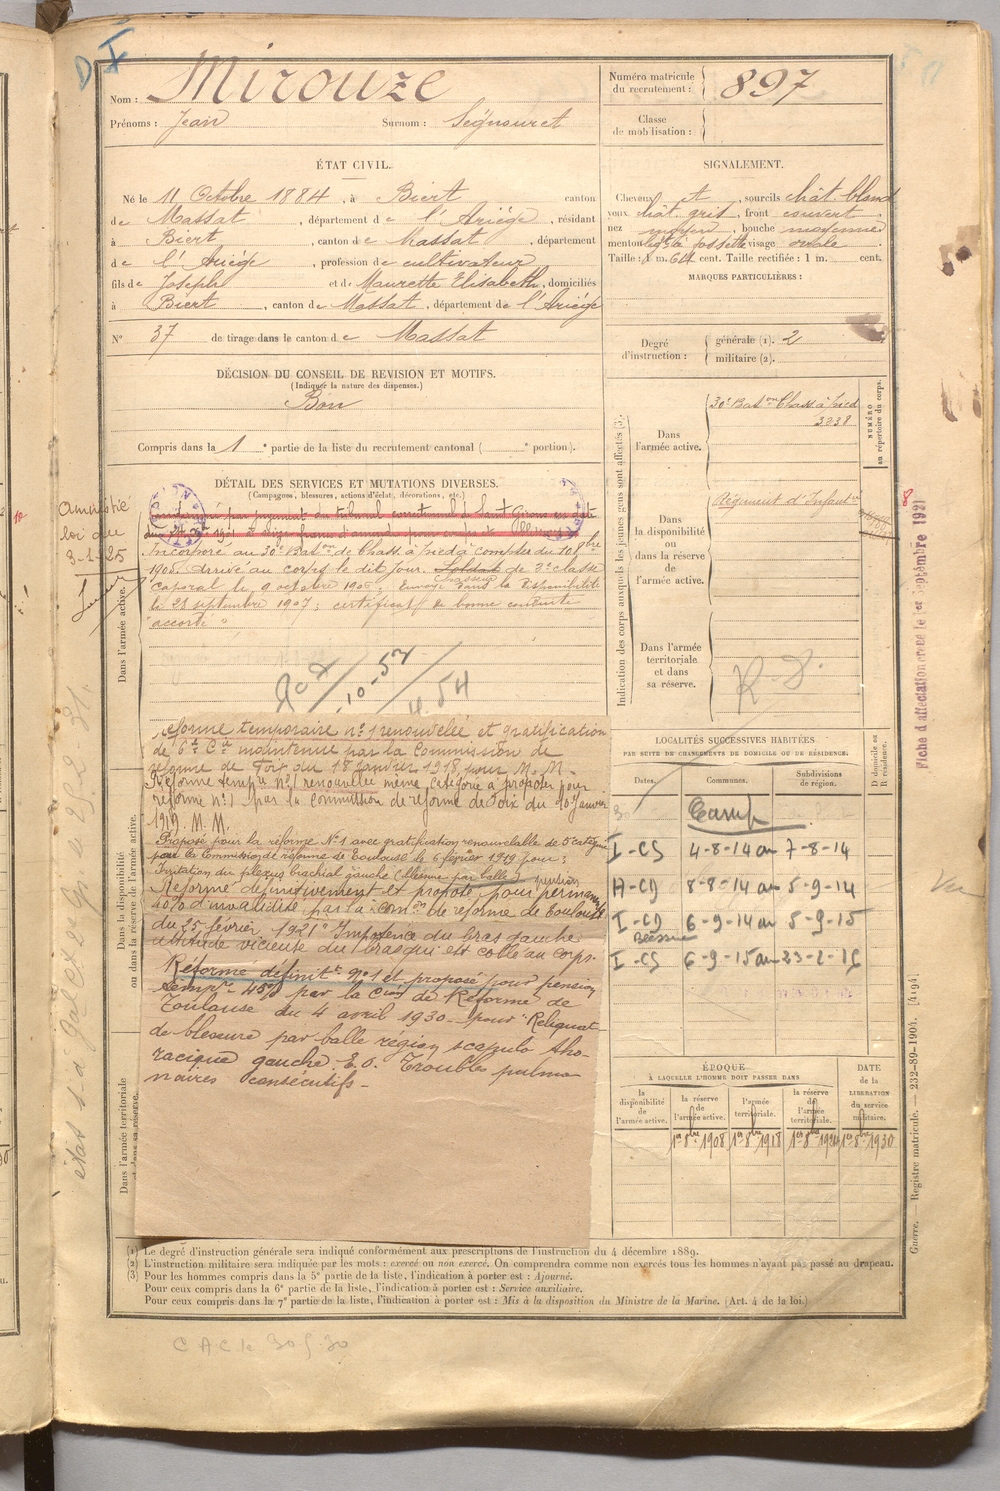 Nom : Mirouze
Prénoms : Jean Surnom : Ségnouret
Numéro matricule du recrutement : 897
Classe de mobilisation :
ÉTAT CIVIL.
Né le 11 Octobre 1884, à Biert canton
de Massat, département de l'Ariège, résidant
à Biert, canton de Massat, département
de l'Ariège, profession de cultivateur
fils de Joseph et de Maurette Elisabeth, domiciliés
à Biert, canton de Massat, département de l'Ariège
N° 37 de tirage dans le canton de Massat
SIGNALEMENT.
Cheveux et, sourcils chât. blond
yeux chât. gris, front couvert
nez moyen, bouche moyenne
menton à fossette visage ovale
Taille : 1 m. 64 cent. Taille rectifiée : 1 m. cent.
MARQUES PARTICULIÈRES :
Degré d'instruction : générale (1). 2
militaire (2).
DÉCISION DU CONSEIL DE REVISION ET MOTIFS.
(Indiquer la nature des dispenses.)
Bon
Compris dans la 1e partie de la liste du recrutement cantonal ( e portion).
DÉTAIL DES SERVICES ET MUTATIONS DIVERSES.
(Campagnes, blessures, actions d'éclat, décorations, etc.)
Amnistié
loi du
3-1-25
par jugement du tribunal correctionnel de Saint Girons en date
Incorporé au 30e Baton de Chass. à pied à compter du 10 8bre
1905. arrivé au corps le dit jour. Soldat de 2e classe
Chasseur
caporal le 9 octobre 1906; Envoyé dans la disponibilité
le 28 septembre 1907; certificat de bonne conduite
"accordé"
10-57
4.54
Réforme temporaire n°1 renouvelée et gratification
de 6e Cie maintenue par la Commission de
réforme de Foix du 18 janvier 1918 pour M. M.
Réforme tempre n°1 renouvelée même catégorie à proposer pour
réforme n°1 par la Commission de réforme de Foix du 20 Janvier
1919. M. M.
Proposé pour la réforme N°1 avec gratification renouvelable de 5e catégie
par la Commission de réforme de Toulouse le 6 février 1919 pour :
Irritation du plexus brachial gauche (blessure par balle)
Réformé définitivement et proposé pour pension perman
40% d'invalidité par la Comon de réforme de Toulouse
du 25 février 1921 "Impotence du bras gauche
attitude vicieuse du bras qui est collé au corps.
Réformé définitt n°1 et proposé pour pension
tempre 45% par la Cion de Réforme de
Toulouse du 4 avril 1930 - pour "Reliquat
de blessure par balle région scapulo tho-
racique gauche. E.O. Troubles pulmo
naires consécutifs -
Dans l'armée active.
Dans la disponibilité ou dans la réserve de l'armée active.
Dans l'armée territoriale
Indication des corps auxquels les jeunes gens sont affectés (3).
NUMÉRO au répertoire du corps.
Dans l'armée active. 30e Baton Chass. à pied
3238
Dans la disponibilité ou dans la réserve de l'armée active. Régiment d'Infanrie
Dans l'armée territoriale et dans sa réserve.
R-8.
Fiche d'affectation créée le 1er Septembre 1921
LOCALITÉS SUCCESSIVES HABITÉES
PAR SUITE DE CHANGEMENTS DE DOMICILE OU DE RÉSIDENCE.
Dates. Communes. Subdivisions de région. D domicile ou R résidence.
Camp
I-CS 4-8-14 au 7-8-14
A-CD 8-8-14 au 5-9-14
I-CD 6-9-14 au 5-9-15
Blessure
I-CS 6-9-15 au 23-2-16
ÉPOQUE
À LAQUELLE L'HOMME DOIT PASSER DANS
la disponibilité de l'armée active.
la réserve de l'armée active.
l'armée territoriale.
la réserve de l'armée territoriale.
DATE de la LIBÉRATION du service militaire.
1er 8bre 1908 1er 8bre 1918 1er 8bre 1924 1er 8bre 1930
Guerre. — Registre matricule. — 232-89-1904. [4194]
(1) Le degré d'instruction générale sera indiqué conformément aux prescriptions de l'instruction du 4 décembre 1889.
(2) L'instruction militaire sera indiquée par les mots : exercé ou non exercé. On comprendra comme non exercés tous les hommes n'ayant pas passé au drapeau.
(3) Pour les hommes compris dans la 5e partie de la liste, l'indication à porter est : Ajourné.
Pour ceux compris dans la 6e partie de la liste, l'indication à porter est : Service auxiliaire.
Pour ceux compris dans la 7e partie de la liste, l'indication à porter est : Mis à la disposition du Ministre de la Marine. (Art. 4 de la loi.)
C A C le 30 5 30